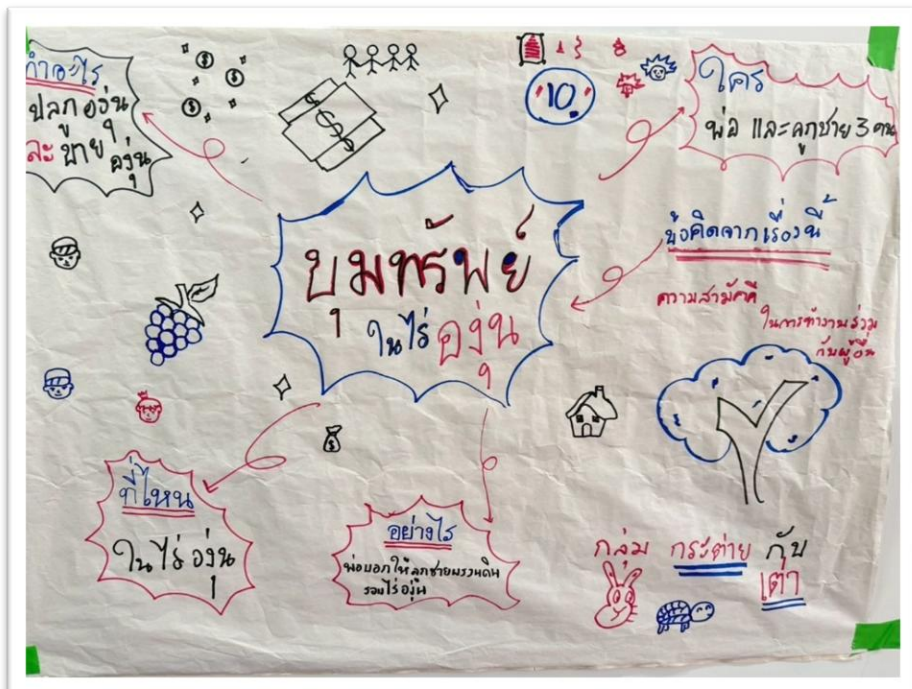 ทำอะไร
ปลูกองุ่น
ละ ขายองุ่น
10
ใคร
พ่อ และลูกชาย 3 คน
ขุมทรัพย์
ในไร่องุ่น
ข้อคิดจากเรื่องนี้
ความสามัคคี
ในการทำงานร่วม
กับผู้อื่น
ที่ไหน
ในไร่องุ่น
อย่างไร
พ่อบอกให้ลูกชายพรวนดิน
รอบไร่องุ่น
กลุ่ม กระต่าย กับ
เต่า